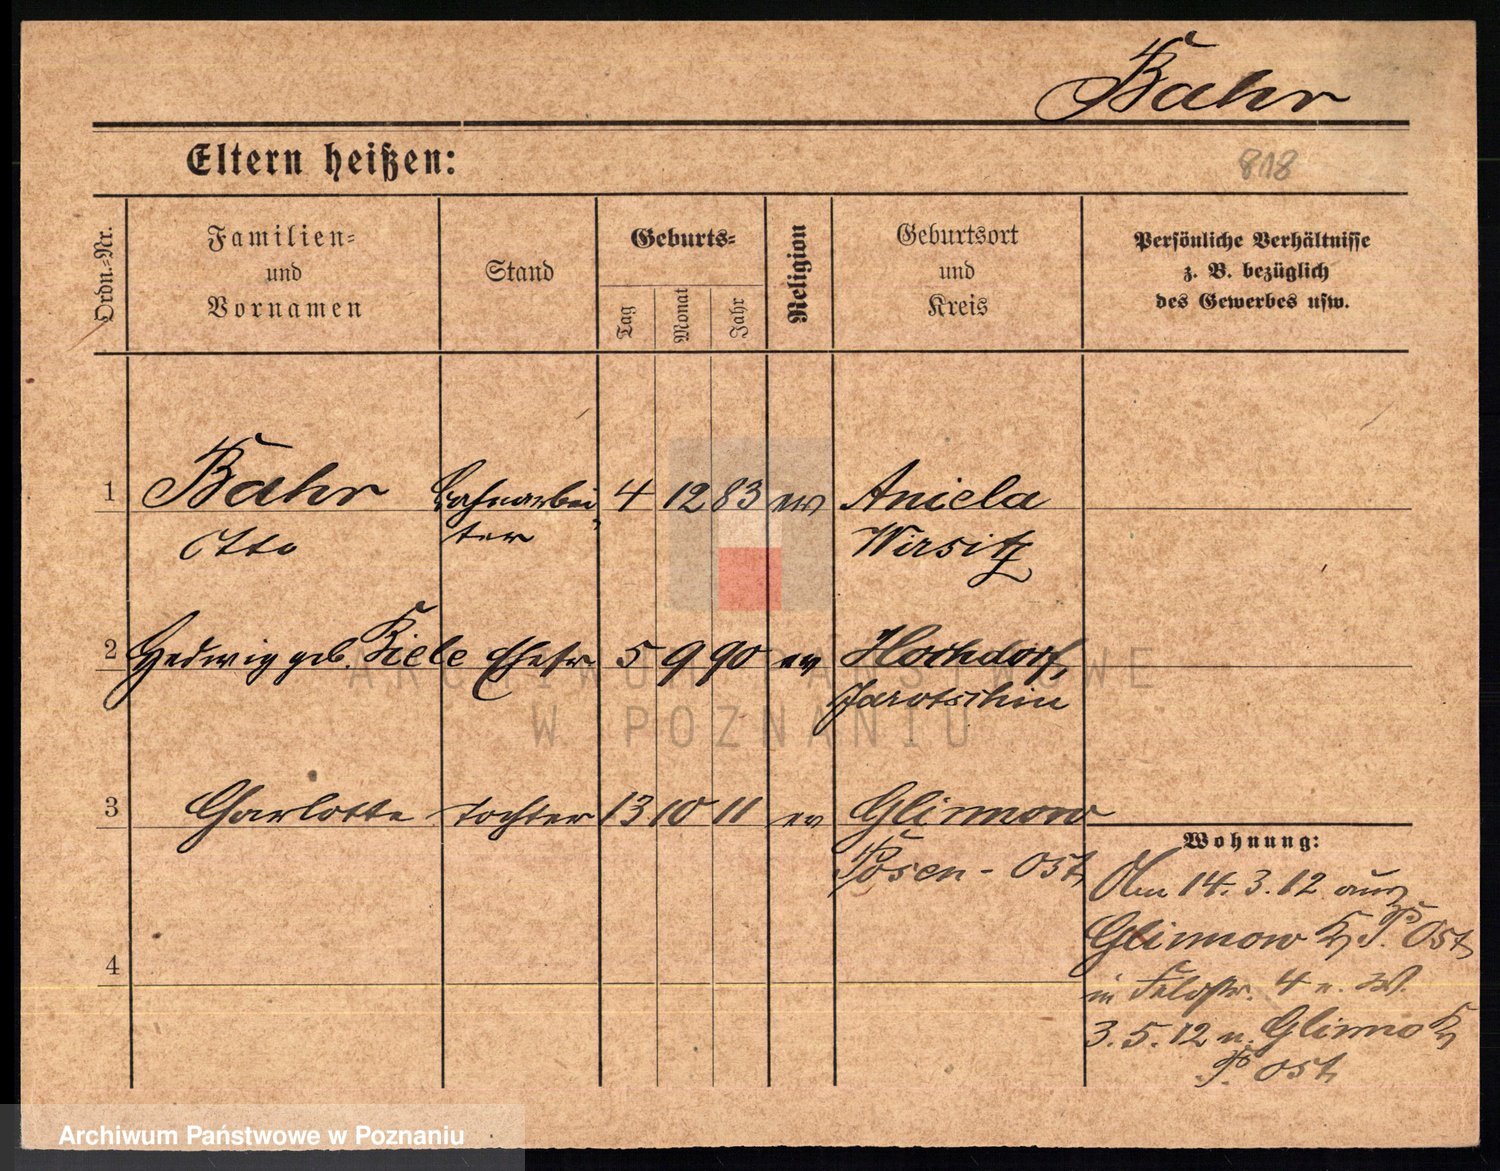 Bahr
Eltern heißen:
818
Ordn.-Nr.
Familien-
und
Vornamen
Stand
Geburts-
Tag
Monat
Jahr
Religion
Geburtsort
und
Kreis
Persönliche Verhältnisse
z. B. bezüglich
des Gewerbes usw.
1 Bahr Bahnarbei- 4 12 83 ev Aniela
Otto ter Wirsitz
2 Hedwig geb. Kiele Ehefr 5 9 90 ev Hochdorf,
Jarotschin
3 Charlotte Tochter 13 10 11 ev Glinnow
Posen - Ost
4
Wohnung:
Am 14. 3. 12 aus
Glinnow K P. Ost
in Feldstr. 4 n. W.
3. 5. 12 n. Glinno K
P. Ost
ARCHIWUM PAŃSTWOWE
W POZNANIU
Archiwum Państwowe w Poznaniu